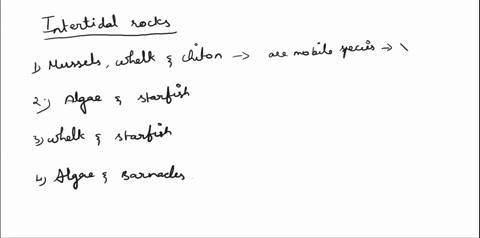 Intertidal rocks
1) Mussels, whelk & chiton → are mobile species →
2) Algae & starfish
3) whelk & starfish
4) Algae & Barnacles